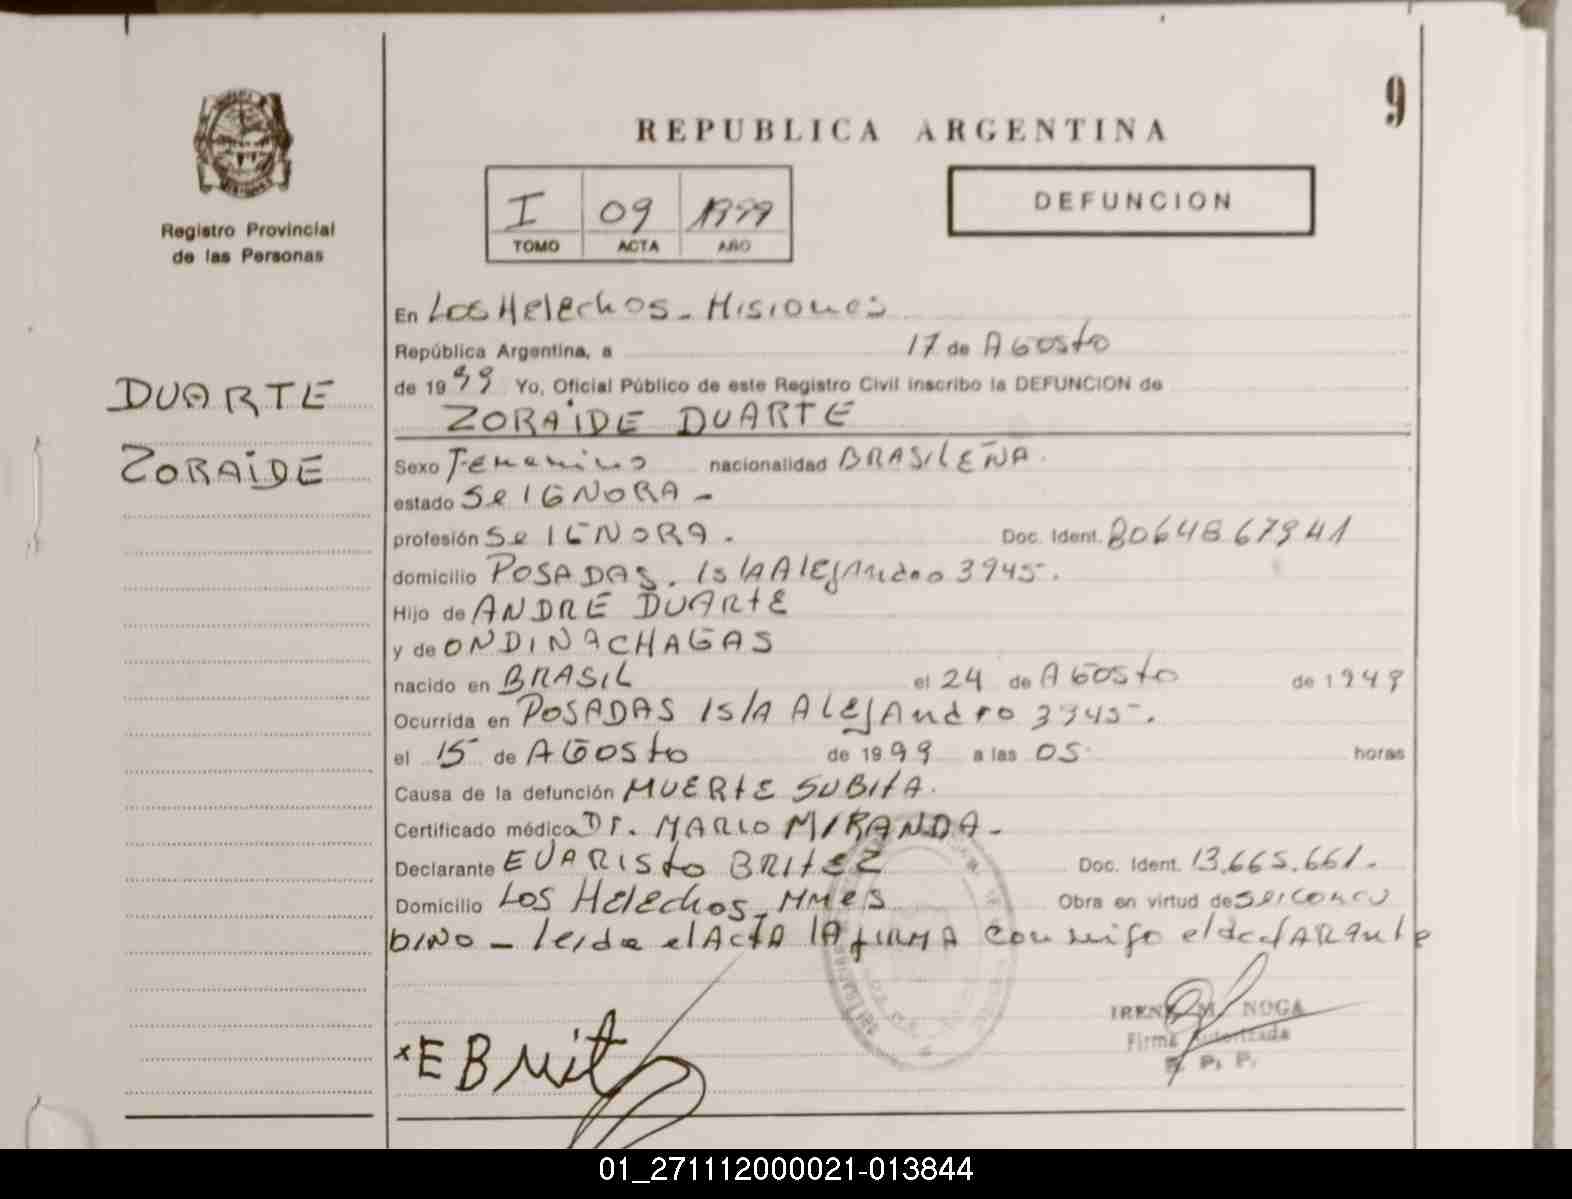 9
REPUBLICA ARGENTINA
I 09 1999
TOMO ACTA AÑO
DEFUNCION
Registro Provincial
de las Personas
DUARTE
ZORAIDE
En Los Helechos - Misiones
República Argentina, a 17 de Agosto
de 1999 Yo, Oficial Público de este Registro Civil inscribo la DEFUNCION de
ZORAIDE DUARTE
Sexo Femenino nacionalidad BRASILEÑA.
estado Se IGNORA -
profesión Se IGNORA. Doc. Ident. 8064867941
domicilio POSADAS. Isla Alejandro 3945.
Hijo de ANDRE DUARTE
y de ONDINA CHAGAS
nacido en BRASIL el 24 de Agosto de 1949
Ocurrida en POSADAS Isla Alejandro 3945.
el 15 de Agosto de 1999 a las 05 horas
Causa de la defunción MUERTE SUBITA.
Certificado médico Dr. MARIO MIRANDA -
Declarante EVARISTO BRITEZ Doc. Ident. 13.665.661.
Domicilio Los Helechos, Mnes Obra en virtud de ser concu
bino - leida el Acta la firma conmigo el declarante
x E Brit
IRENE M. NOGA
Firma Autorizada
R. P. P.
01_271112000021-013844